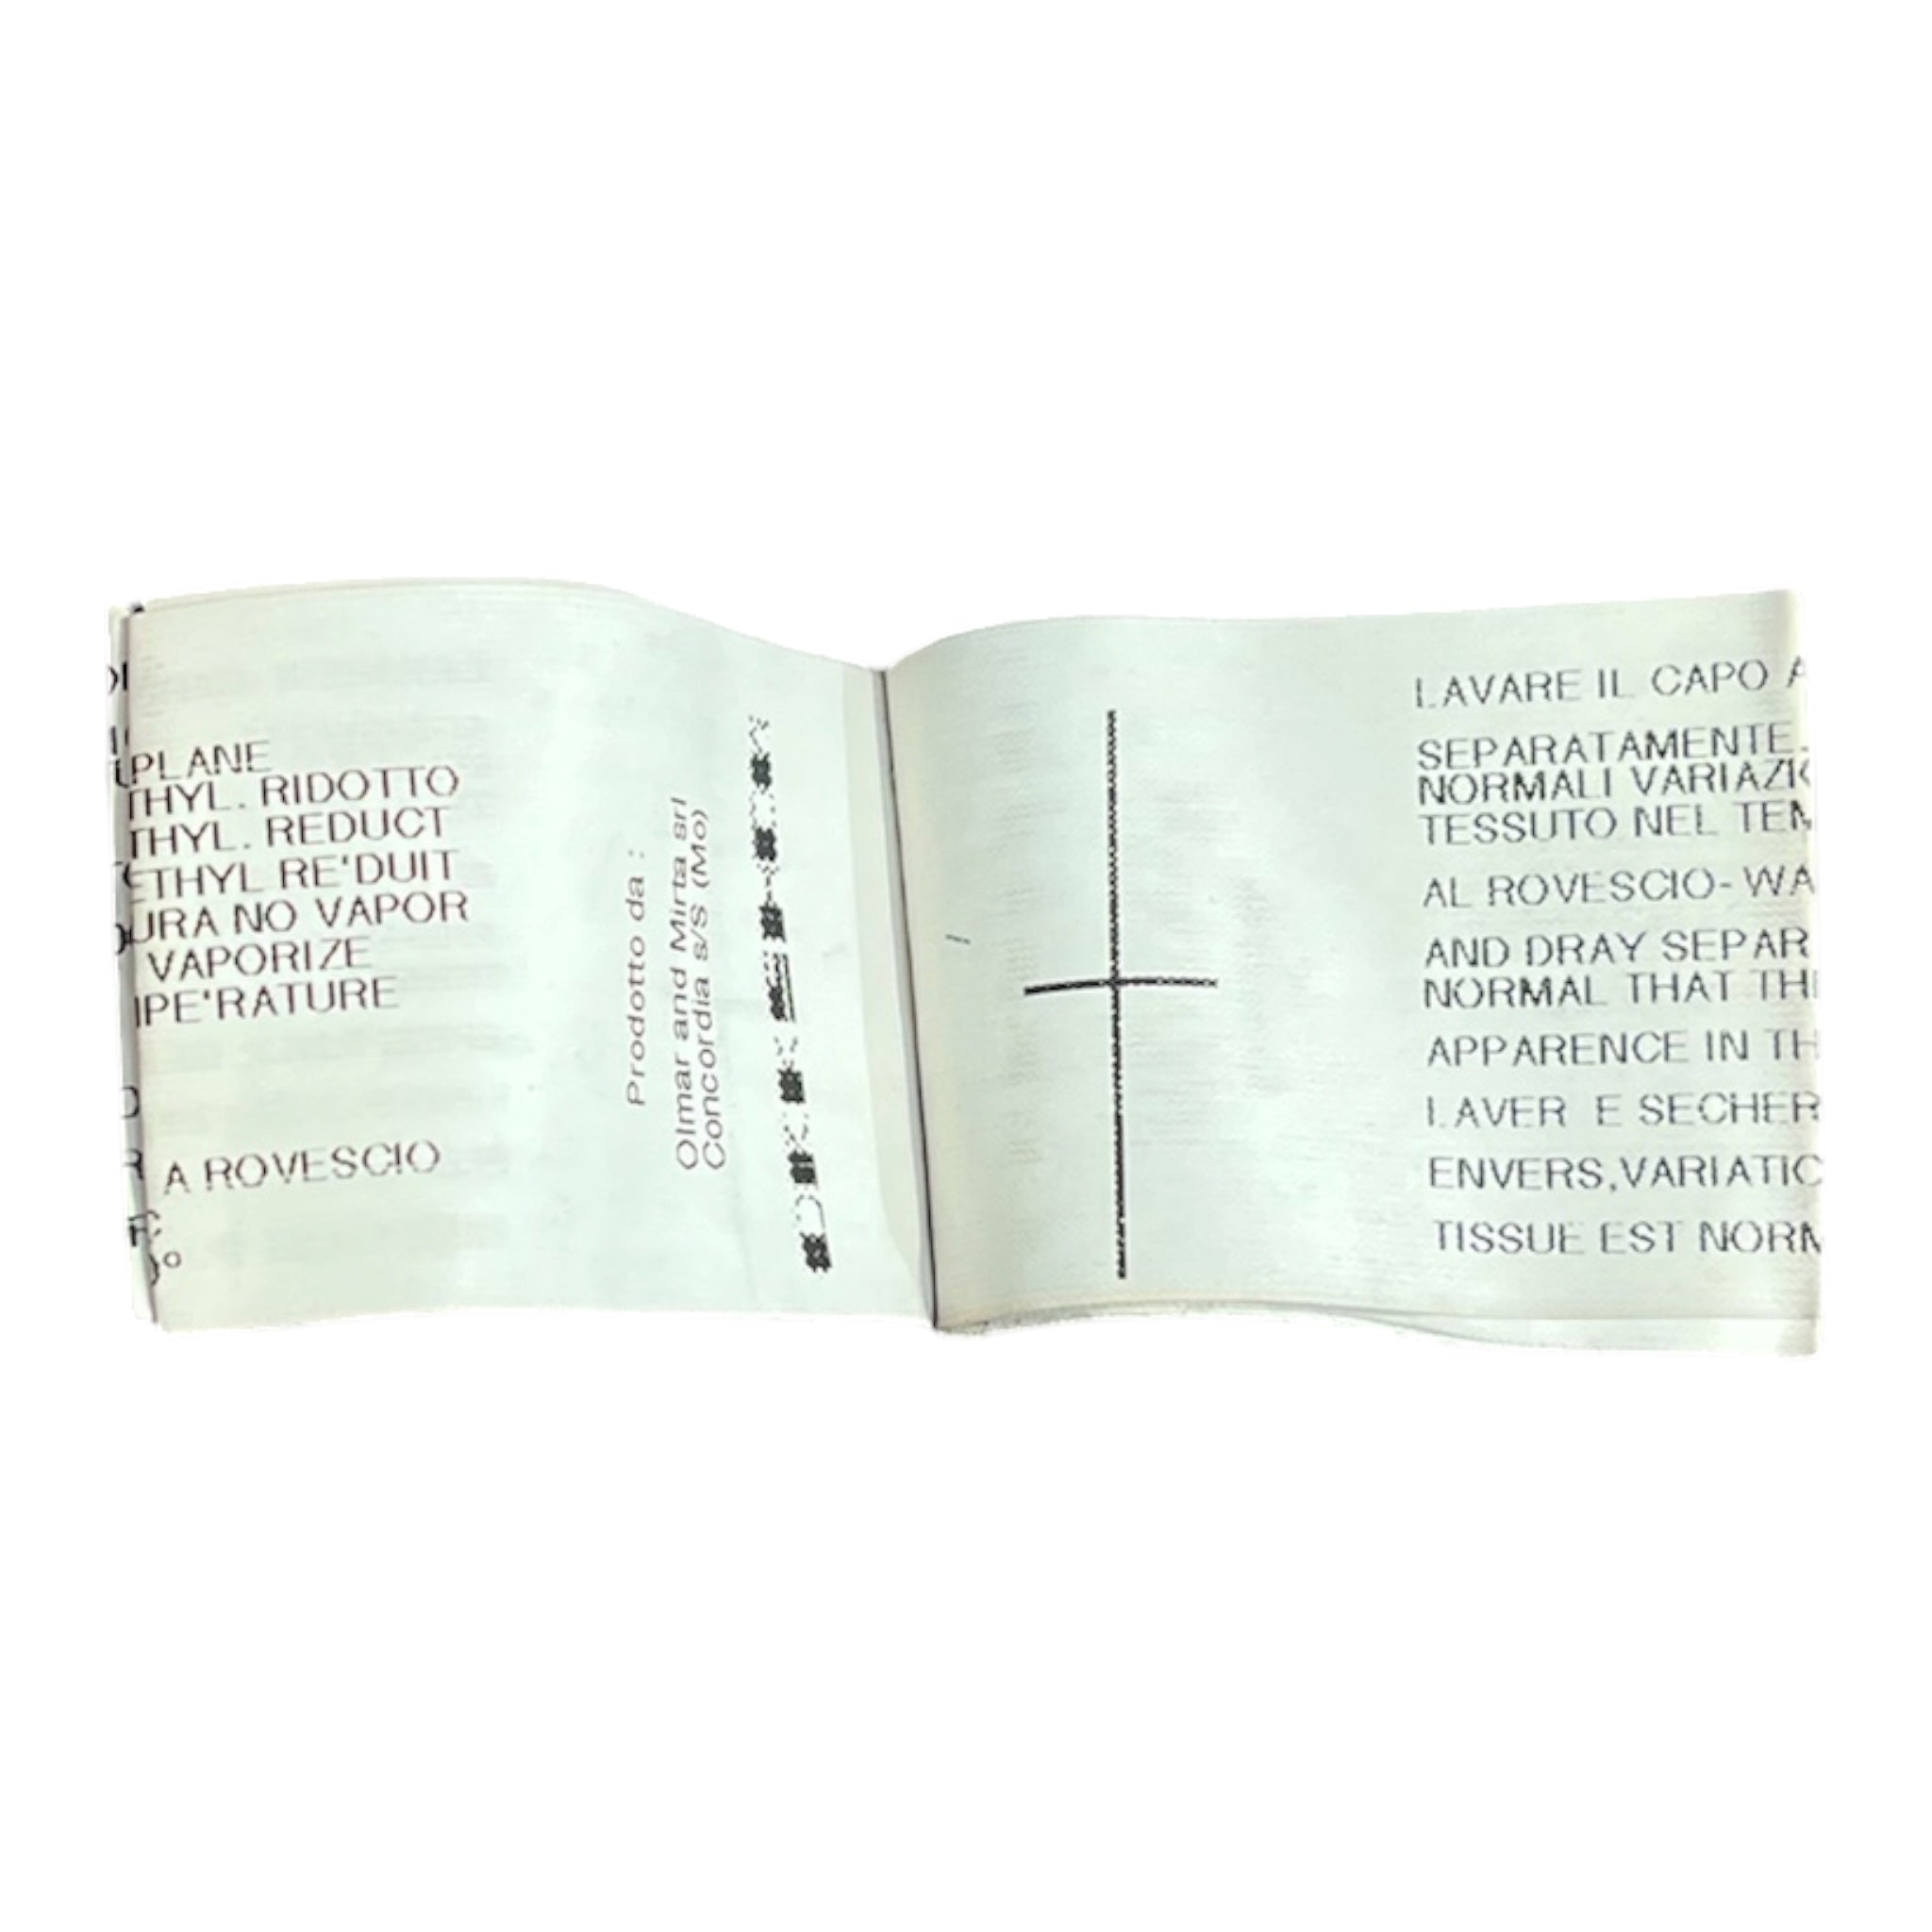 PLANE
THYL. RIDOTTO
THYL. REDUCT
ETHYL RE'DUIT
URA NO VAPOR
VAPORIZE
PE'RATURE
A ROVESCIO
Prodotto da :
Olmar and Mirta srl
Concordia s/S (Mo)
LAVARE IL CAPO A
SEPARATAMENTE.
NORMALI VARIAZIO
TESSUTO NEL TEM
AL ROVESCIO- WA
AND DRAY SEPAR
NORMAL THAT THI
APPARENCE IN TH
LAVER E SECHER
ENVERS,VARIATIO
TISSUE EST NORM